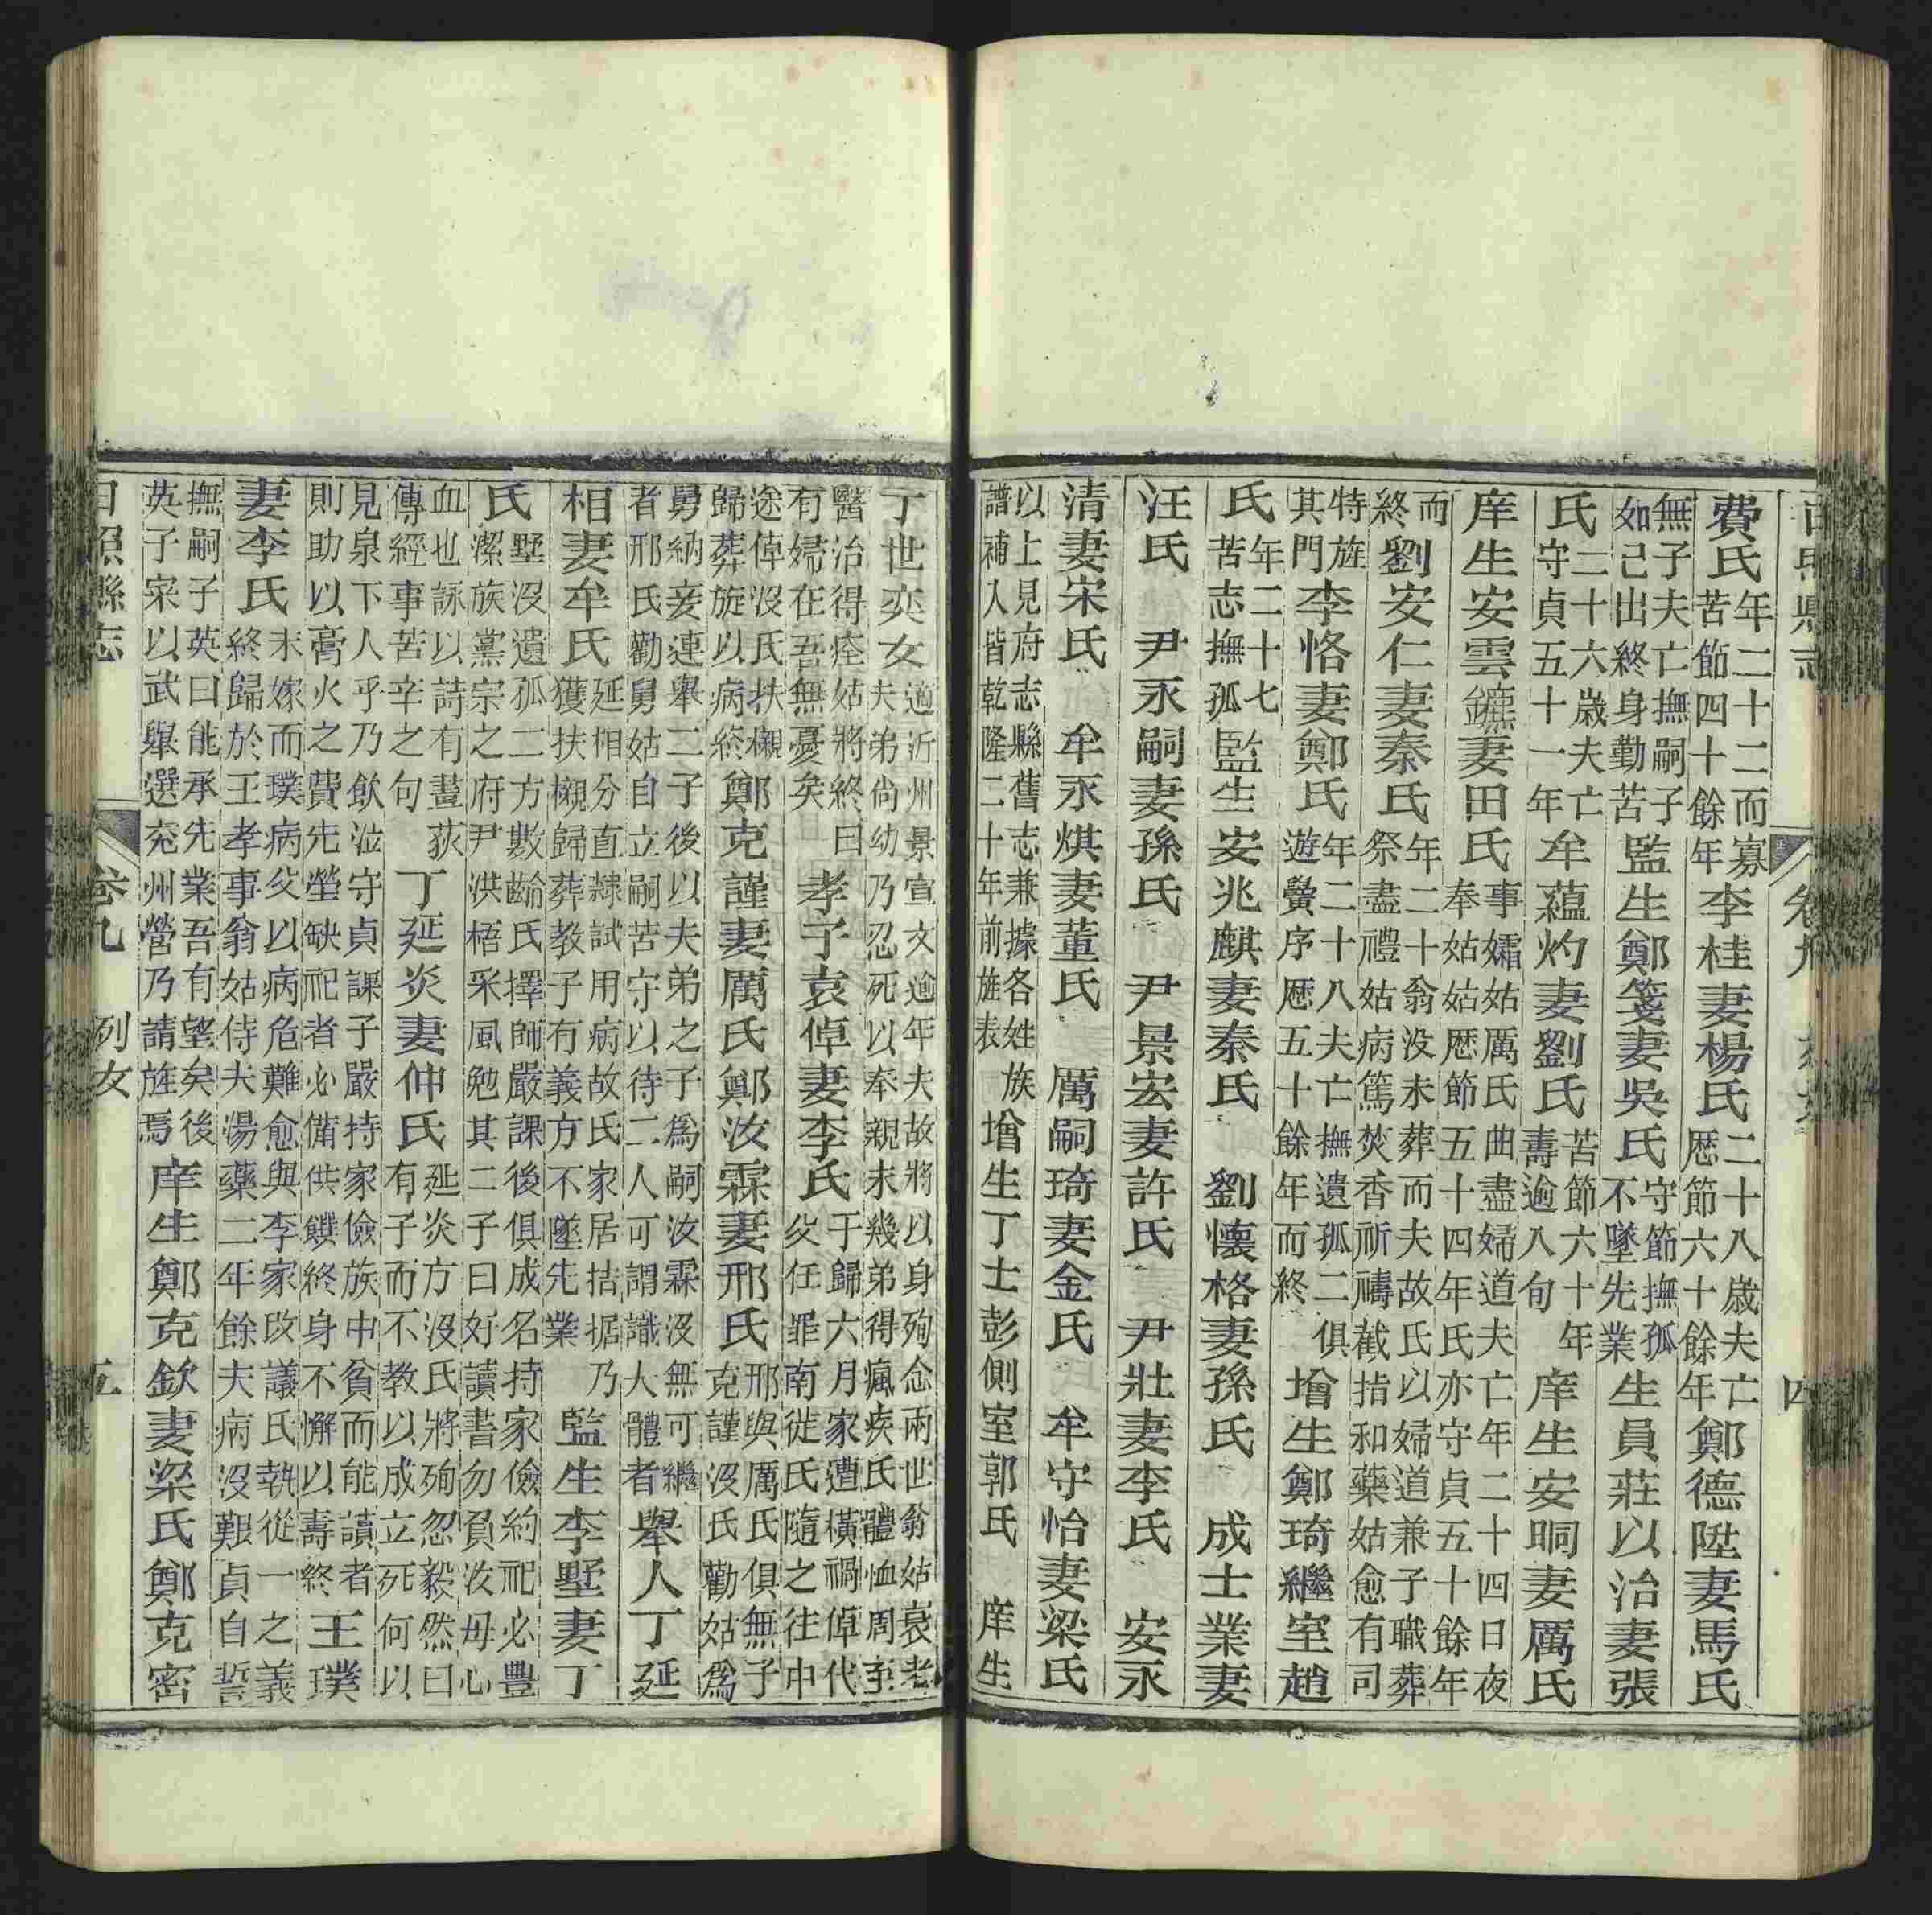 日照縣志 卷九 列女 四
費氏年二十二而寡苦節四十餘年李桂妻楊氏二十八歲夫亡歴節六十餘年鄭德陞妻馬氏
無子夫亡撫嗣子如己出終身勤苦監生鄭箋妻吳氏守節撫孤不墜先業生員莊以治妻張
氏二十六歲夫亡守貞五十一年牟蘊灼妻劉氏苦節六十年壽逾八旬庠生安晍妻厲氏
庠生安雲鑣妻田氏事孀姑厲氏曲盡婦道夫亡年二十四日夜奉姑姑歴節五十四年氏亦守貞五十餘年
而終劉安仁妻秦氏年二十翁没未葬而夫故氏以婦道兼子職葬祭盡禮姑病篤焚香祈禱截指和藥姑愈有司
特旌其門李恪妻鄭氏年二十八夫亡撫遺孤二俱遊黌序歴五十餘年而終增生鄭琦繼室趙
氏年二十七苦志撫孤監生安兆麒妻秦氏 劉懷格妻孫氏 成士業妻
汪氏 尹永嗣妻孫氏 尹景宏妻許氏 尹壯妻李氏 安永
清妻宋氏 牟永烘妻董氏 厲嗣琦妻金氏 牟守怡妻梁氏
以上見府志縣舊志兼據各姓族譜補入皆乾隆二十年前旌表增生丁士彭側室郭氏 庠生
丁世奕女適沂州景宣文逾年夫故將以身殉念兩世翁姑衰老夫弟尚幼乃忍死以奉親未幾弟得瘋疾氏體恤周至
醫治得痊姑將終曰有婦在吾無憂矣孝子袁倬妻李氏于歸六月家遭橫禍倬代父任罪南徙氏隨之往中
途倬沒氏扶櫬歸葬旋以病終鄭克謹妻厲氏鄭汝霖妻邢氏邢與厲氏俱無子克謹沒氏勸姑爲
舅納妾連舉二子後以夫弟之子爲嗣汝霖沒無可繼者邢氏勸舅姑自立嗣苦守以待二人可謂識大體者舉人丁延
相妻牟氏延相分直隸試用病故氏家居拮据乃獲扶櫬歸葬教子有義方不墜先業監生李墅妻丁
氏墅沒遺孤二方數齡氏擇師嚴課後俱成名持家儉約祀必豐潔族黨宗之府尹洪梧采風勉其二子曰好讀書勿負汝母心
血也詠以詩有畫荻傳經事苦辛之句丁延炎妻仲氏延炎方沒氏將殉忽毅然曰有子而不教以成立死何以
見泉下人乎乃飲泣守貞課子嚴持家儉族中貧而能讀者則助以膏火之費先塋缺祀者必備供饌終身不懈以壽終王璞
妻李氏未嫁而璞病父以病危難愈與李家改議氏執從一之義終歸於王孝事翁姑侍夫湯藥二年餘夫病沒艱貞自誓
撫嗣子英曰能承先業吾有望矣後英子寀以武舉選兖州營乃請旌焉庠生鄭克欽妻梁氏鄭克密
日照縣志 卷九 列女 五